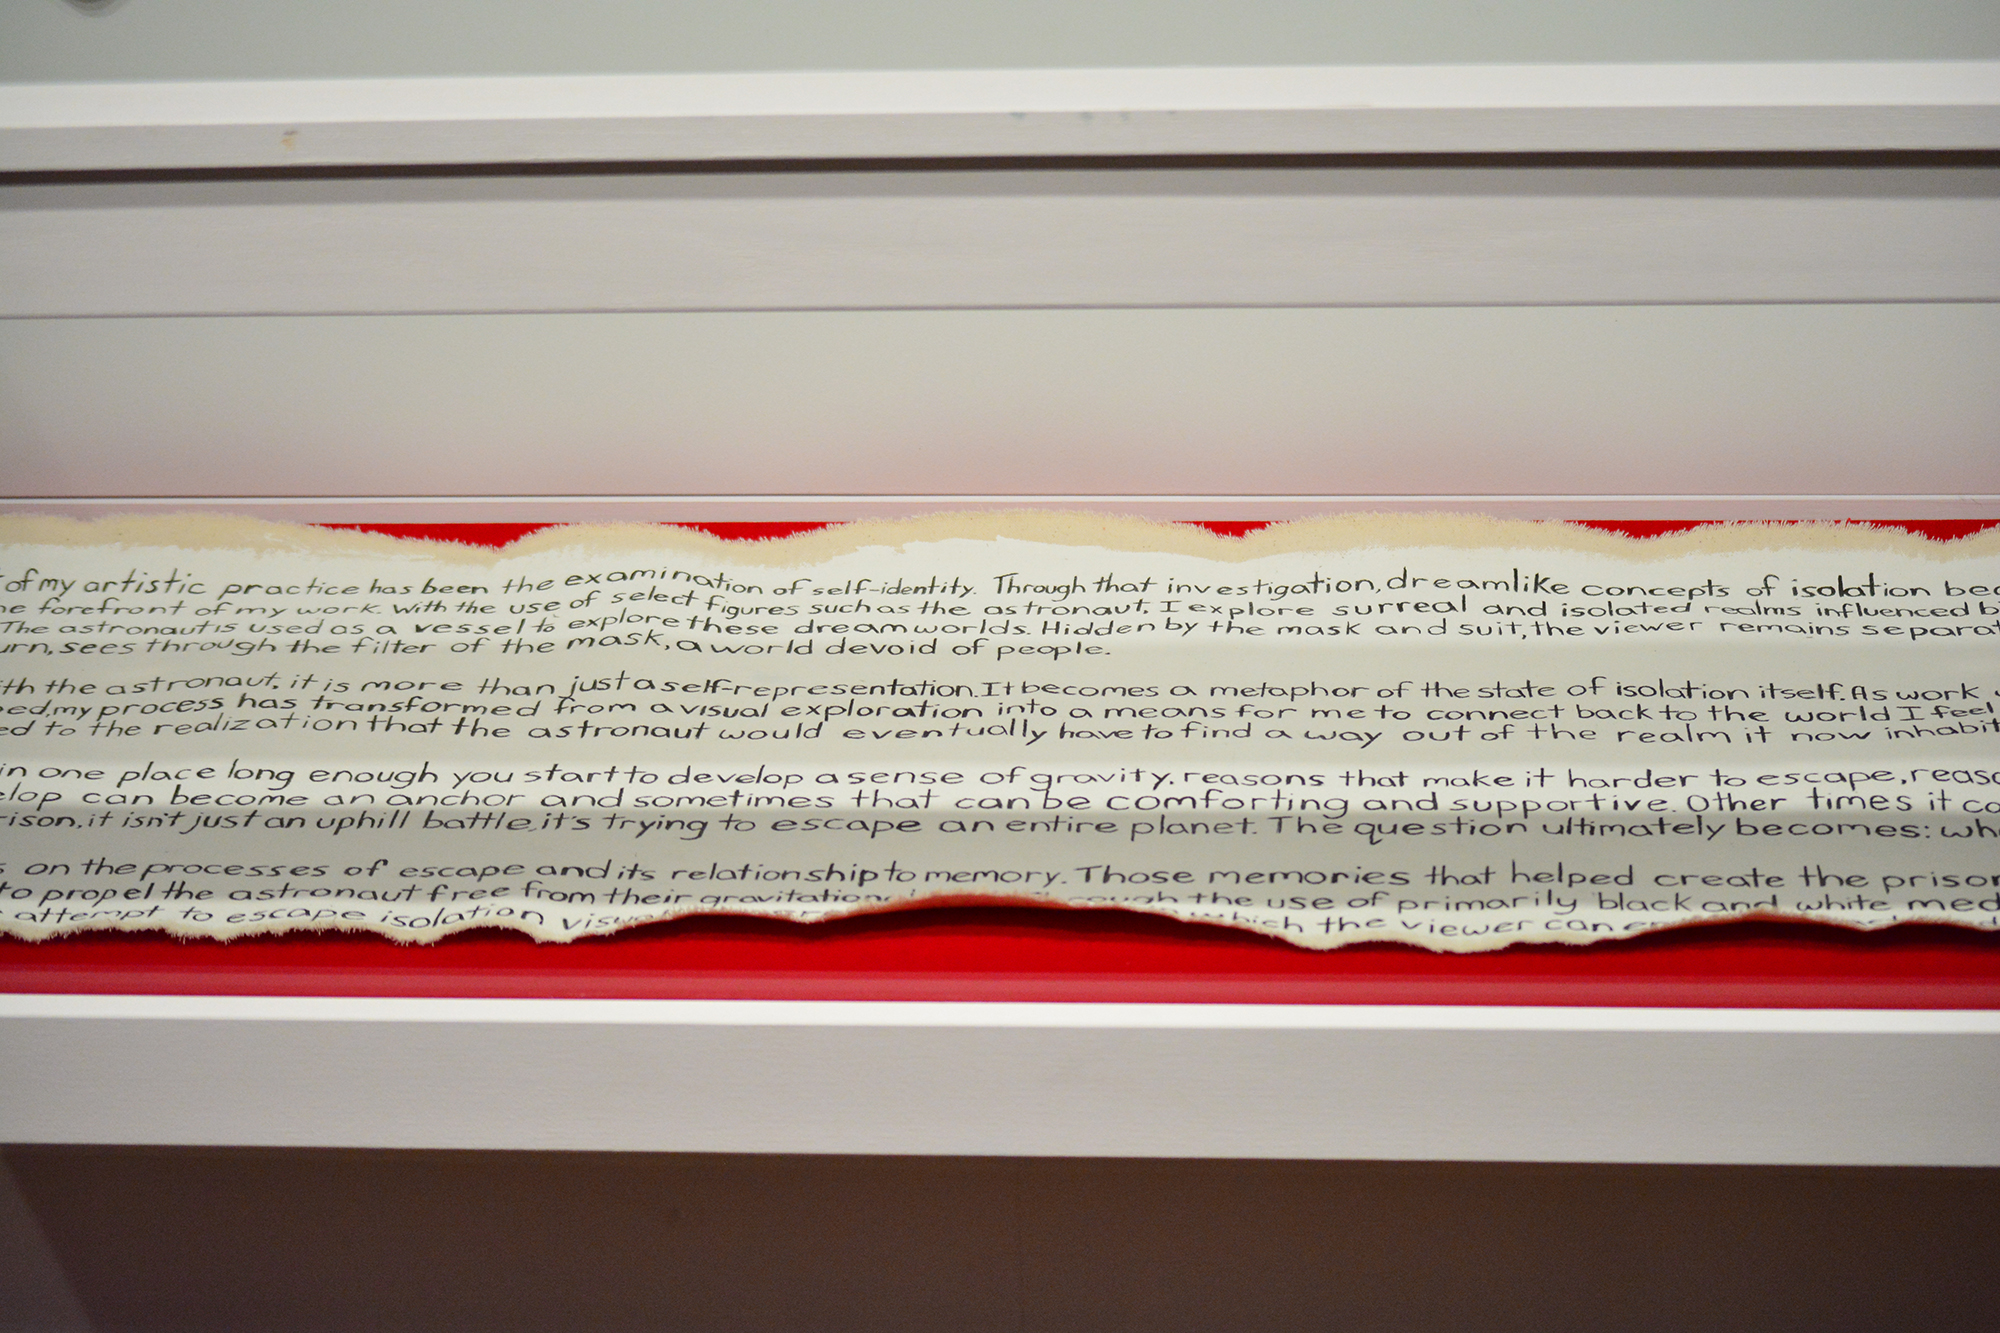 of my artistic practice has been the examination of self-identity. Through that investigation, dreamlike concepts of isolation
forefront of my work. With the use of select figures such as the astronaut, I explore surreal and isolated realms influenced
The astronaut is used as a vessel to explore these dreamworlds. Hidden by the mask and suit, the viewer remains
sees through the filter of the mask, a world devoid of people.
the astronaut, it is more than just a self-representation. It becomes a metaphor of the state of isolation itself. As work
my process has transformed from a visual exploration into a means for me to connect back to the world I feel
to the realization that the astronaut would eventually have to find a way out of the realm it now
in one place long enough you start to develop a sense of gravity. reasons that make it harder to escape,
can become an anchor and sometimes that can be comforting and supportive. Other times it
it isn't just an uphill battle, it's trying to escape an entire planet. The question ultimately becomes:
on the processes of escape and its relationship to memory. Those memories that helped create the
to propel the astronaut free from their the use of primarily black and white
attempt to escape isolation the viewer can